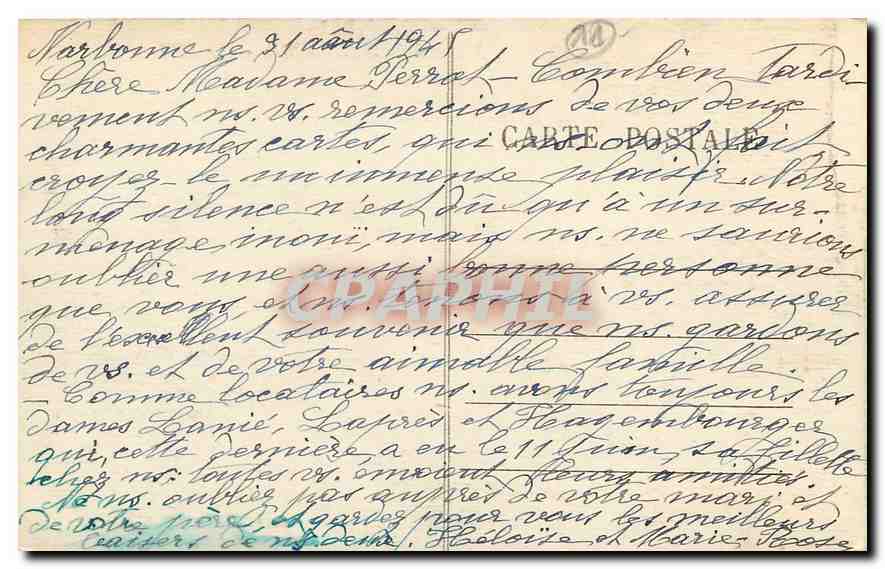 Narbonne le 31 août 1945
11
Chère Madame Perrat - Combien Tardi
vement ns. vs. remercions de vos deux
charmantes cartes, qui ns. ont fait
CARTE POSTALE
croyez-le un immense plaisir. Notre
long silence n'est dû qu'à un sur-
ménage inouï, mais ns. ne saurions
oublier une aussi bonne personne
CPAPHIL
que vous, et ns. tenons à vs. assurer
de l'excellent souvenir que ns. gardons
de vs. et de votre aimable famille.
- Comme locataires ns. avons toujours les
dames Lanié, Laprès et Hagembourger
qui, cette dernière, a eu le 11 Juin, sa fillette
chez ns: toutes vs. envoient leurs amitiés.
Ne ns. oubliez pas auprès de votre mari et
de votre père, et gardez pour vous les meilleurs
baisers de ns. deux. Héloïse et Marie-Rose